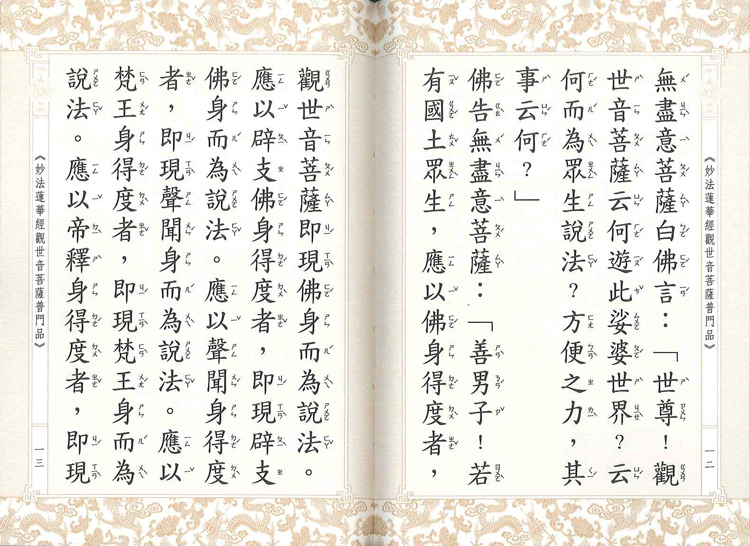 《妙法蓮華經觀世音菩薩普門品》
一二
無盡意菩薩白佛言：「世尊！觀
世音菩薩云何遊此娑婆世界？云
何而為眾生說法？方便之力，其
事云何？」
佛告無盡意菩薩：「善男子！若
有國土眾生，應以佛身得度者，
觀世音菩薩即現佛身而為說法。
應以辟支佛身得度者，即現辟支
佛身而為說法。應以聲聞身得度
者，即現聲聞身而為說法。應以
梵王身得度者，即現梵王身而為
說法。應以帝釋身得度者，即現
《妙法蓮華經觀世音菩薩普門品》
一三